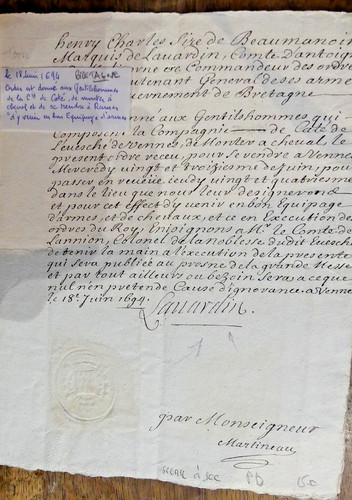 henry Charles Sire de Beaumanoir
Marquis de Lavardin, Comte Dantoign
cre Commandeur des ordres
Lieutenant General de ses armees
vernement de Bretagne
le 18 Juin 1694 BRETAGNE
Ordre est donné aux Gentilshommes
de la Cie de Caté, de monter à
cheval et de se rendre à Vannes
"d'y venir en bon Equipage d'armes
onne aux Gentilshommes qui
Composent la Compagnie de Caté de
L'evesche de vennes, de Monter a cheval, le
present ordre receu, pour se rendre a Vennes
Mercredy vingt et troizieme de Juin, pour
passer en reveüe jeudy vingt et quatriesme
dans le lieu que nous leur designerons
et pour cet effect d'y venir en bon Equipage
d'armes, et de chevaux, et ce en Execution des
ordres du Roy, Enjoignons a Mr. le Comte de
Lannion, Colonel de la noblesse dudit Evesché
de tenir la main a l'execution de la presente
qui sera publieé au prosne de la grande Messe
et par tout ailleurs ou bezoin sera, a ce que
nul n'en pretende Cause d'ignorance. a Vennes
le 18e. Juin 1694.
Lavardin.
par Monseigneur
Martineau